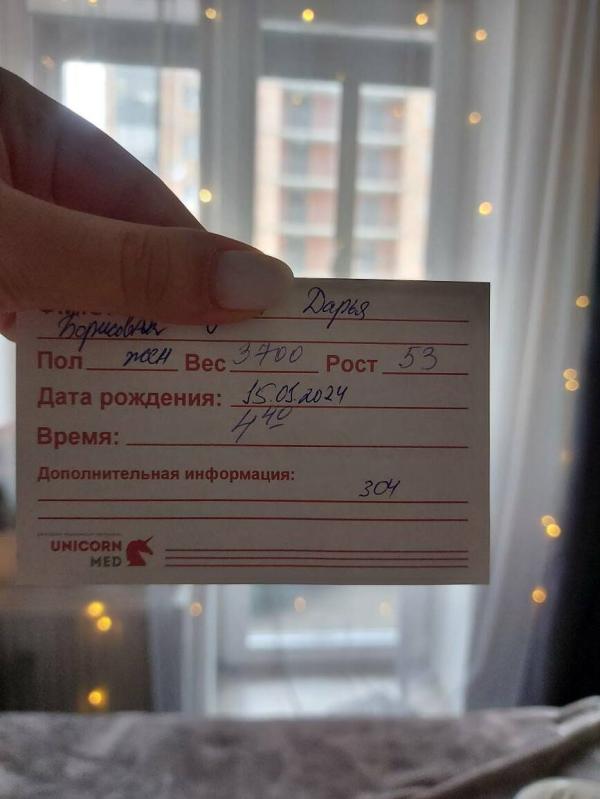 Дарья
Борисовна
Пол жен Вес 3700 Рост 53
Дата рождения: 15.01.2024
Время: 4 40
Дополнительная информация:
304
UNICORN
MED